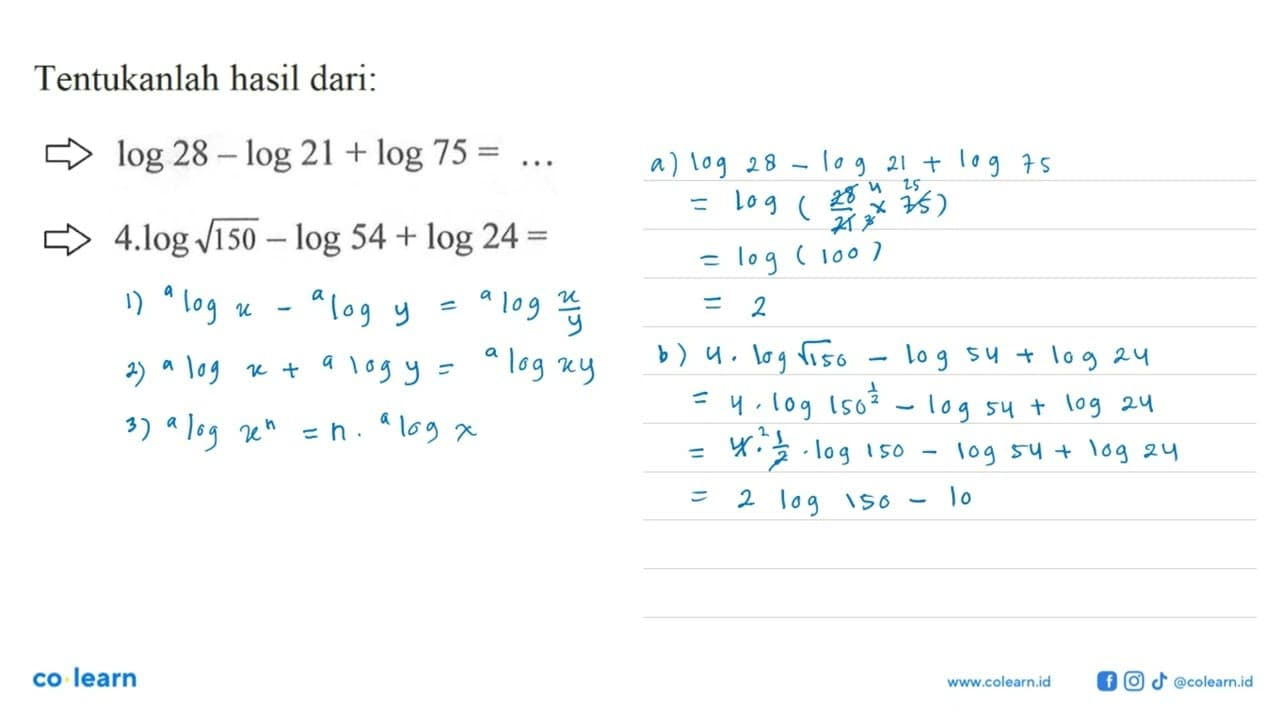 Tentukanlah hasil dari:
⇨ log 28 – log 21 + log 75 = ...
⇨ 4.log √150 – log 54 + log 24 =
1) ᵃlog x - ᵃlog y = ᵃlog x/y
2) ᵃlog x + ᵃlog y = ᵃlog xy
3) ᵃlog xⁿ = n. ᵃlog x
a) log 28 - log 21 + log 75
= log (28 4/21 3 × 75 25)
= log (100)
= 2
b) 4. log √150 - log 54 + log 24
= 4. log 150^½ - log 54 + log 24
= 4 2 . 1/2 . log 150 - log 54 + log 24
= 2 log 150 - lo
co·learn
www.colearn.id
@colearn.id